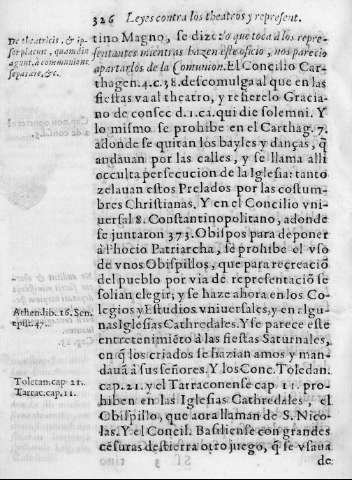 326 Leyes contra los theatros y represent.
De theatricis, & ip-
ser placuit, quamdiu
agunt, à communione
separare, &c.
tino Magno, se dize: Lo que toca à los repre-
sentantes mientras hazen este oficio, nos parecio
apartarlos de la Comunion. El Concilio Car-
thagen. 4. c. 38. descomulga al que en las
fiestas va al theatro, y refierelo Gracia-
no de consec d. 1. ca. qui die solemni. Y
lo mismo se prohibe en el Carthag. 7.
adonde se quitan los bayles y danças, q̃
andauan por las calles, y se llama alli
occulta persecucion de la Iglesia: tanto
zelauan estos Prelados por las costum-
bres Christianas. Y en el Concilio vni-
uersal 8. Constantinopolitano, adonde
se juntaron 373. Obispos para deponer
à Phocio Patriarcha, se prohibe el vso
de vnos Obispillos, que para recreaciõ
del pueblo por via de representaciõ se
solian elegir; y se haze ahora en los Co-
legios y Estudios vniuersales, y en algu-
nas Iglesias Cathredales. Y se parece este
entretenimiẽto à las fiestas Saturnales,
en q̃ los criados se hazian amos y man-
dauã à sus señores. Y los Conc. Toledan.
cap. 21. y el Tarraconense cap 11. pro-
hiben en las Iglesias Cathredales, el
Obispillo, que aora llaman de S. Nico-
las. Y el Concil. Basiliense con grandes
cẽsuras destierra otro juego, q̃ se vsaua
de
Athen. lib. 16. Sen.
epist. 47.
Toletan. cap. 21.
Tarrac. cap. 11.